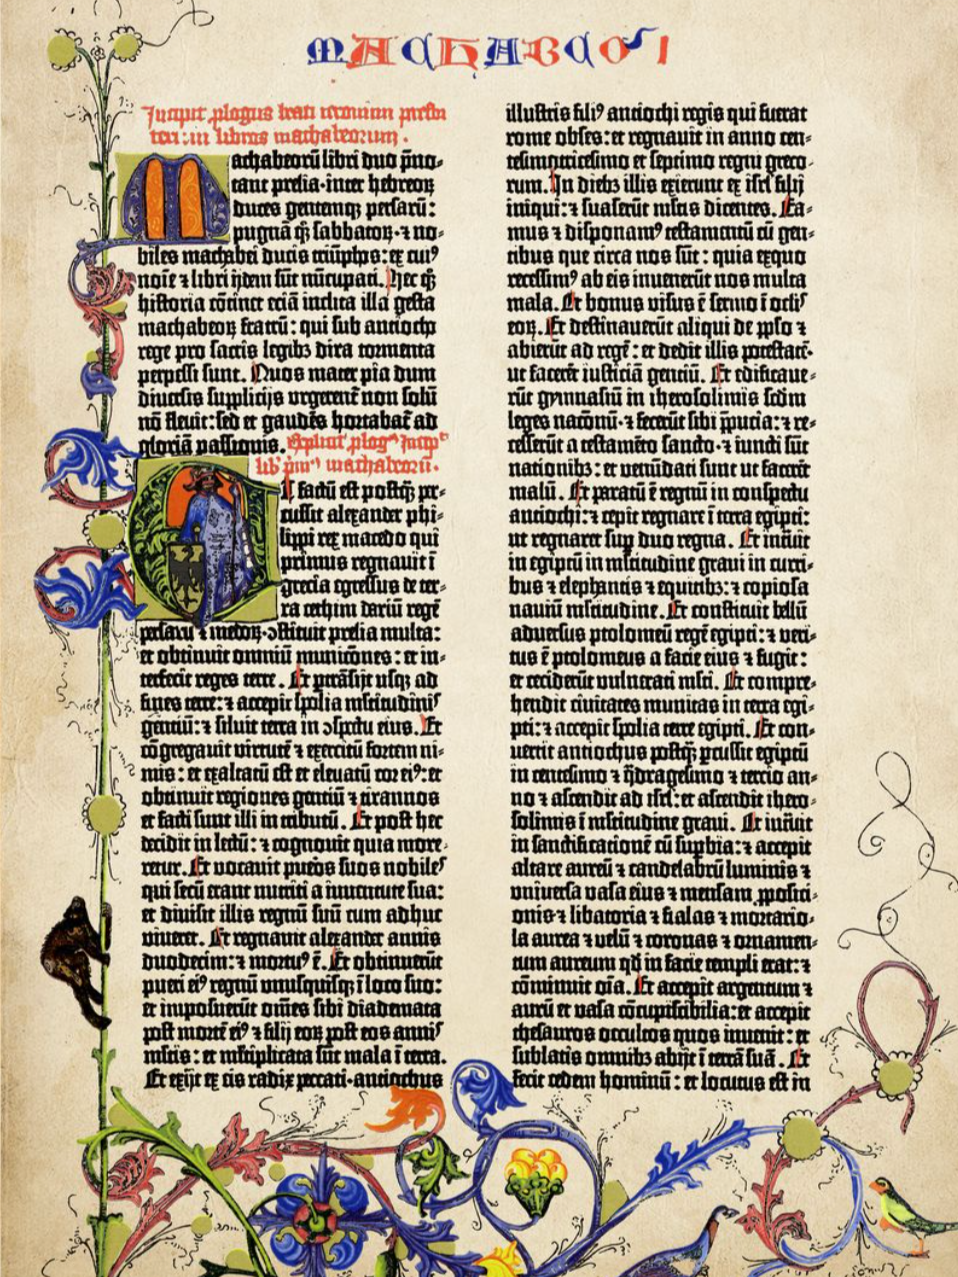 MACHABEO I
Incipit plogus beati ieronimi presbi
teri: in libros machabeorum.
Machabeorū libri duo p̄no-
tant prelia·inter hebreoꝝ
duces gentemqꝫ persarū:
pugnā qꝫ sabbatoꝝ·⁊ no-
biles machabei ducis triūphos: ex cuiꝰ
noīe ⁊ libri ijdem sūt nūcupati. Hec qꝫ
historia cōtinet eciā inclita illa gesta
machabeoꝝ fratrū: qui sub antiocho
rege pro sacris legibꝫ dira tormenta
perpessi sunt. Quos mater pia dum
diuersis supplicijs vrgerent̄ non solū
nō fleuit: sed et gaudēs hortabat̄ ad
gloriā passionis. Explicit plogꝰ Incipꝰ
lib' p̄m' machabeorū.
Et factū est postqꝫ per-
cussit alexander phi-
lippi rex macedo qui
primus regnauit ī
grecia egressus de ter-
ra cethim dariū regē
persarū ⁊ medoꝝ·ꝯstituit prelia multa:
et obtinuit omniū municōnes: et in-
terfecit reges terre. Et ptrāsijt usqꝫ ad
fines terre: ⁊ accepit spolia mltitudinis
gentiū: ⁊ siluit terra in ꝯspctu eius. Et
cōgregauit virtutē ⁊ exercitū fortem ni-
mis: et exaltatū est et eleuatū cor eiꝰ: et
obtinuit regiones gentiū ⁊ tirannos
et facti sunt illi in tributū. Et post hec
decidit in lectū: ⁊ cognouit quia more-
retur. Et vocauit pueros suos nobiles
qui secū erant nutriti a iuuentute sua:
et diuisit illis regnū suū cum adhuc
viueret. Et regnauit alexander annis
duodecim: ⁊ mortuꝰ ē. Et obtinuerūt
pueri eiꝰ regnū vnusquisqꝫ ī loco suo:
et imposuerūt om̄es sibi diademata
post mortē eiꝰ ⁊ filij eoꝝ post eos annis
mltis: et mltiplicata sūt mala ī terra.
Et exijt ex eis radix peccati·antiochus
illustris filiꝰ antiochi regis qui fuerat
rome obses: et regnauit in anno cen-
tesimotricesimo et septimo regni greco-
rum. In diebꝫ illis exierunt ex isrl filij
iniqui: ⁊ suaserūt mltis dicentes. Ea-
mus ⁊ disponamꝰ testamentū cū gen-
tibus que circa nos sūt: quia exquo
recessimꝰ ab eis inuenerūt nos multa
mala. Et bonus visus ē sermo ī oclis
eoꝝ. Et destinauerūt aliqui de pplo ⁊
abierūt ad regē: et dedit illis potestatē·
ut facerēt iusticiā gentiū. Et edificaue-
rūt gymnasiū in iherosolimis scdm
leges nacōnū·⁊ fecerūt sibi p̄pucia: ⁊ re-
cesserūt a testamēto sancto·⁊ iuncti sūt
nationibꝫ: et venūdati sunt ut facerēt
malū. Et paratū ē regnū in conspectu
antiochi: ⁊ cepit regnare ī terra egipti:
ut regnaret sup duo regna. Et intīuit
in egiptū in mltitudine graui in curri-
bus ⁊ elephantis ⁊ equitibꝫ: ⁊ copiosa
nauiū mltitudine. Et constituit bellū
aduersus ptolomeū regē egipti: ⁊ veri-
tus ē ptolomeus a facie eius ⁊ fugit:
et ceciderūt vulnerati mlti. Et compre-
hendit ciuitates munitas in terra egi-
pti: ⁊ accepit spolia terre egipti. Et con-
uertit antiochus postqꝫ pcussit egiptū
in centesimo ⁊ q̄dragesimo ⁊ tercio an-
no ⁊ ascendit ad isrl: et ascendit ihero-
solimis ī mltitudine graui. Et intīuit
in sanctificationē cū supbia: ⁊ accepit
altare aureū ⁊ candelabrū luminis ⁊
vniuersa vasa eius ⁊ mensam ꝓpositi-
onis ⁊ libatoria ⁊ fialas ⁊ mortario-
la aurea ⁊ velū ⁊ coronas ⁊ ornamen-
tum aureum qd in facie templi erat: ⁊
cōminuit oīa. Et accepit argentum ⁊
aurū et vasa cōcupiscibilia: et accepit
thesauros occultos quos inuenit: et
sublatis omnibꝫ abijt ī terrā suā. Et
fecit cedem hominū: et locutus est in